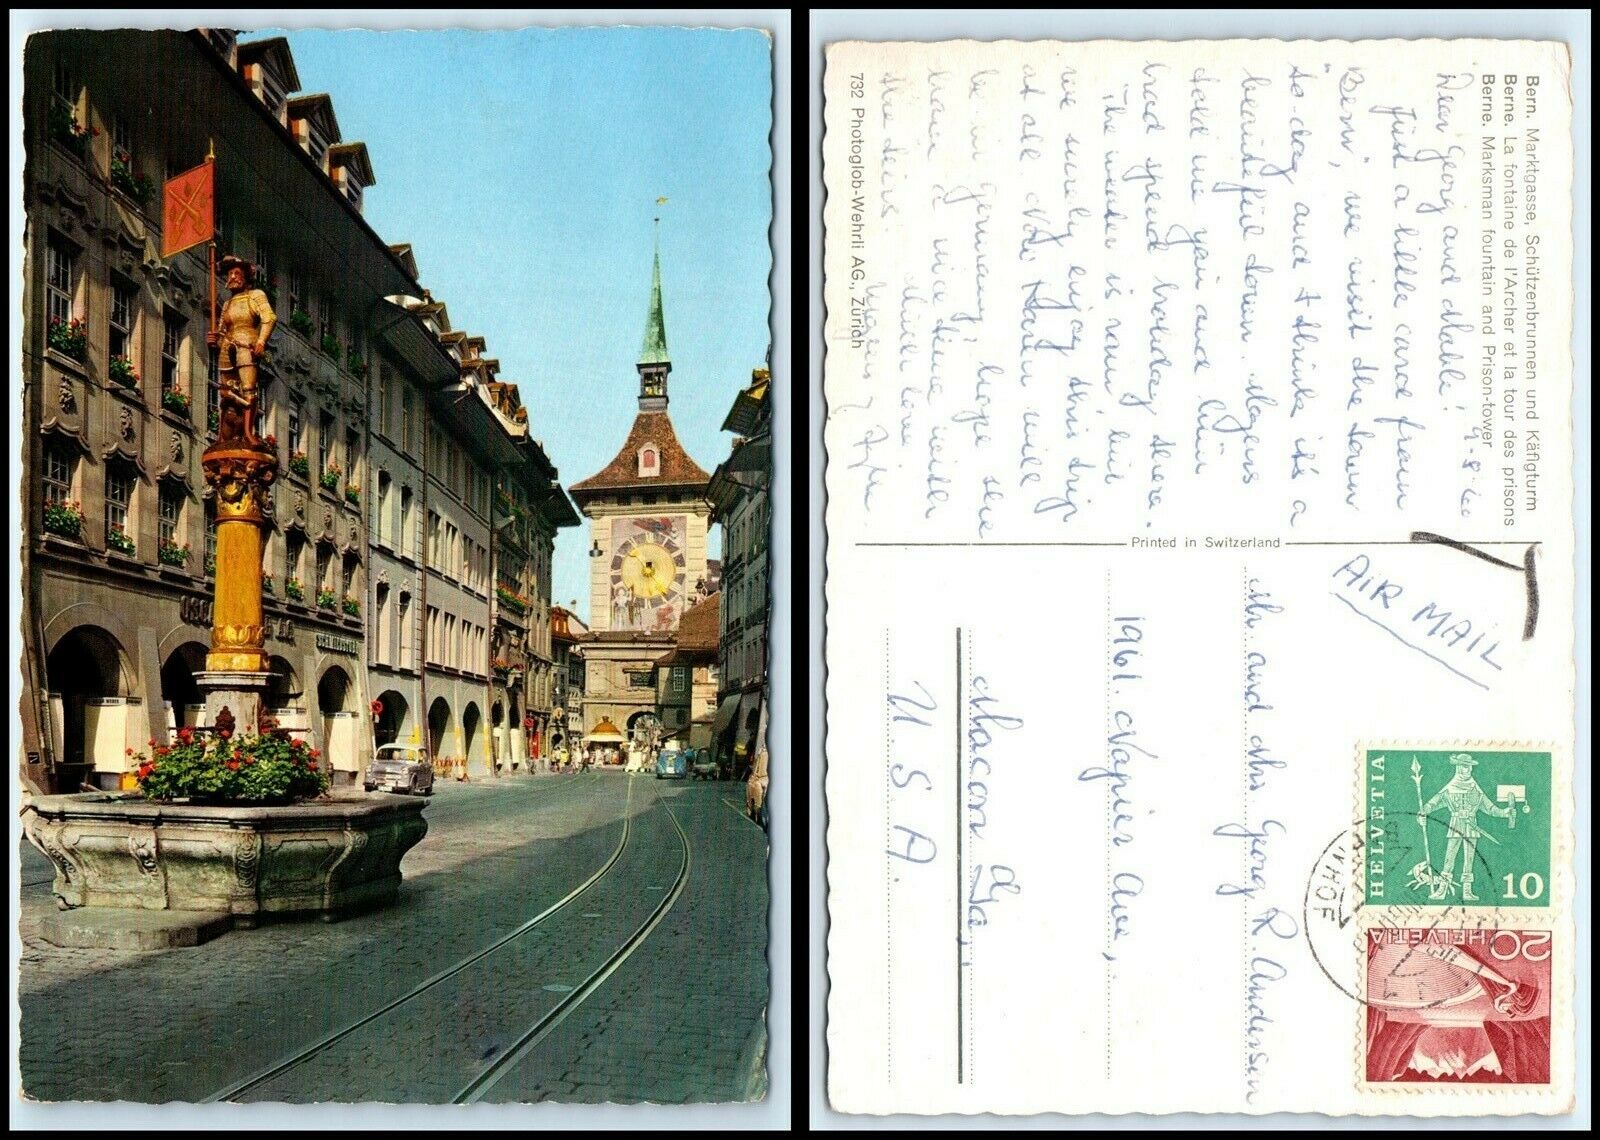 SCHMIDTGH
Bern. Marktgasse, Schützenbrunnen und Käfigturm
Berne. La fontaine de l'Archer et la tour des prisons
Berne. Marksman fountain and Prison-tower
Dear Georg and
Just a little card from
"Bern", we visit the town
to-day and I think it's a
beautiful town. Mogens
told me you and
had spend holiday there.
The weather is rainy but
we surely enjoy this trip
at all. Now Karen will
be in Germany, hope she
have a nice time with
the
Much love
Mogens
732 Photoglob-Wehrli AG., Zürich
Printed in Switzerland
AIR MAIL
Mr. and Mrs. Georg R. Andersen
1961. Napier Ave,.
Macon Ga,.
U. S. A.
HELVETIA
10
20
HELVETIA